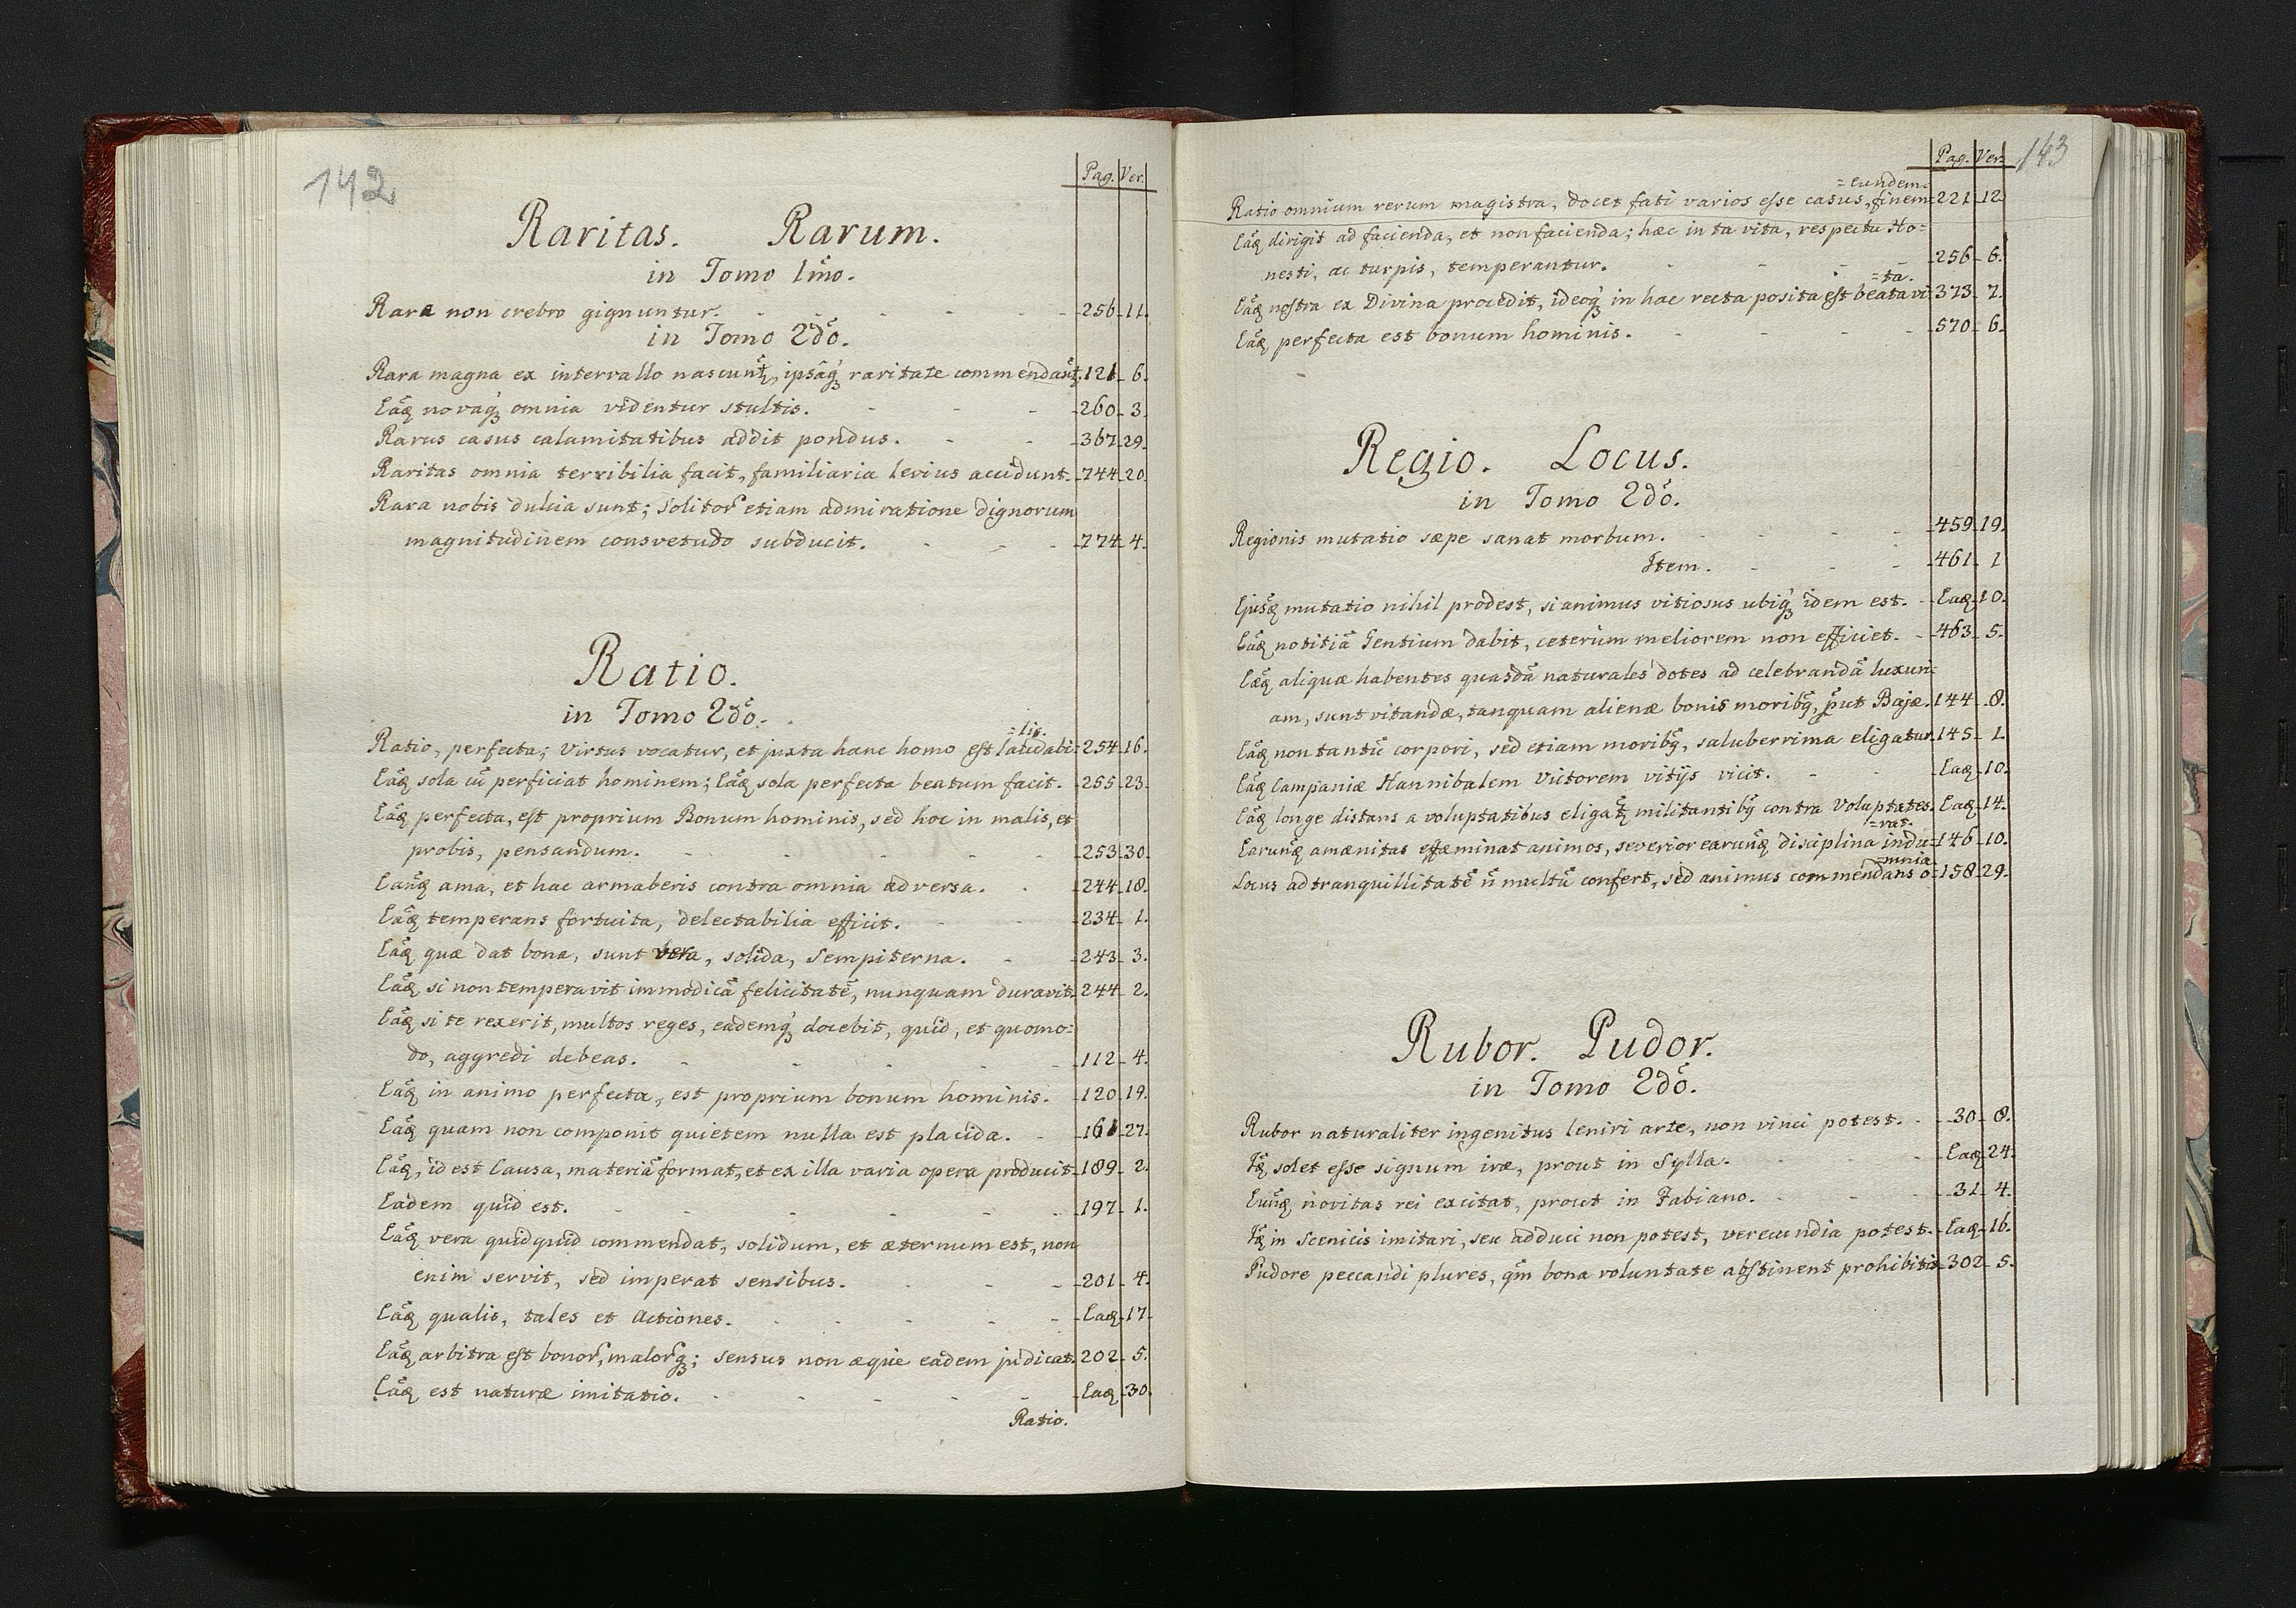 142
Pag. Ver.
Raritas. Rarum.
in Tomo 1mo.
Rara non crebro gignuntur. 256. 11.
in Tomo 2dõ.
Rara magna ex intervallo nascunt̃, ipsâq́; raritate commendant̃. 121. 6.
Eãq novaq́; omnia videntur stultis. 260. 3.
Rarus casus calamitatibus addit pondus. 367. 29.
Raritas omnia terribilia facit, familiaria levius accidunt. 744. 20.
Rara nobis dulcia sunt; solitor̃ etiam admiratione dignorum
magnitudinem consvetudo subducit. 774. 4.
Ratio.
in Tomo 2dõ.
=lis.
Ratio, perfecta; Virtus vocatur, et juxta hanc homo est laudabi= 254. 16.
Eãq sola cũ perficiat hominem; Eãq sola perfecta beatum facit. 255. 23.
Eãq perfecta, est proprium Bonum hominis, sed hoc in malis, et
probis, pensandum. 253. 30.
Eanq̃ ama, et hac armaberis contra omnia adversa. 244. 18.
Eãq temperans fortuita, delectabilia efficit. 234. 1.
Eãq quæ dat bona, sunt vera, solida, Sempiterna. 243. 3.
Eãq si non temperavit immodicã felicitatẽ, nunquam duravit. 244. 2.
Eãq si te rexerit, multos reges, eademq́; docebit, quid, et quomo=
do, aggredi debeas. 112. 4.
Eãq in animo perfecta, est proprium bonum hominis. 120. 19.
Eãq quam non componit quietem nulla est placida. 161. 27.
Eãq, id est Causa, materiã format, et ex illa varia opera producit. 189. 2.
Eadem quid est. 197. 1.
Eãq vera quidquid commendat, solidum, et æternum est, non
enim servit, sed imperat sensibus. 201. 4.
Eãq qualis, tales et Actiones. Eaq 17.
Eãq arbitra est bonor̃, malor̃q; sensus non æque eadem judicat. 202. 5.
Eãq est naturæ imitatio. Eaq 30.
Ratio.
143
Pag. Ver.
=eundem
Ratio omnium rerum magistra, docet fati varios esse casus, finem 221. 12.
Eãq dirigit ad facienda, et non facienda; hæc in ta vita, respectu Ho=
nesti, ac turpis, temperantur. 256. 6.
=ta.
Eãq nostra ex Divina procedit, ideoq́; in hac recta posita est beata vi= 373. 7.
Eãq perfecta est bonum hominis. 570. 6.
Regio. Locus.
in Tomo 2dõ.
Regionis mutatio sæpe sanat morbum. 459. 19.
Item. 461. 1
Ejusq̃ mutatio nihil prodest, si animus vitiosus ubiq́; idem est. Eaq 10.
Eãq notitiã Gentium dabit, ceterùm meliorem non efficiet. 463. 5.
Eæq̃ aliquæ habentes quasdã naturales dotes ad celebrandã luxuri=
am, sunt vitandæ, tanquam alienæ bonis moribq̃, put Bajæ. 144. 8.
Eãq non tantũ corpori, sed etiam moribq̃, saluberrima eligatur. 145. 1.
Eãq Campaniæ Hannibalem Victorem vitijs vicit. Eaq 10.
Eãq longe distans a voluptatibus eligat̃ militantibq̃ contra Voluptates. Eaq 14.
=rat.
Earunq̃ amænitas effæminat animos, severior earunq̃ disciplina indu= 146. 10.
=mnia
Locus ad tranquillitatẽ ñ multũ confert, sed animus commendans o= 158. 29.
Rubor. Pudor.
in Tomo 2dõ.
Rubor naturaliter ingenitus leniri arte, non vinci potest. 30. 8.
Iq̃ solet esse signum iræ, prout in Sylla. Eaq 24.
Eunq̃ novitas rei excitat, prout in Fabiano. 31. 4.
Iq̃ in Scenicis imitari, seu adduci non potest, verecundia potest. Eaq 16.
Pudore peccandi plures, q̃m bona voluntate abstinent prohibitis. 302. 5.